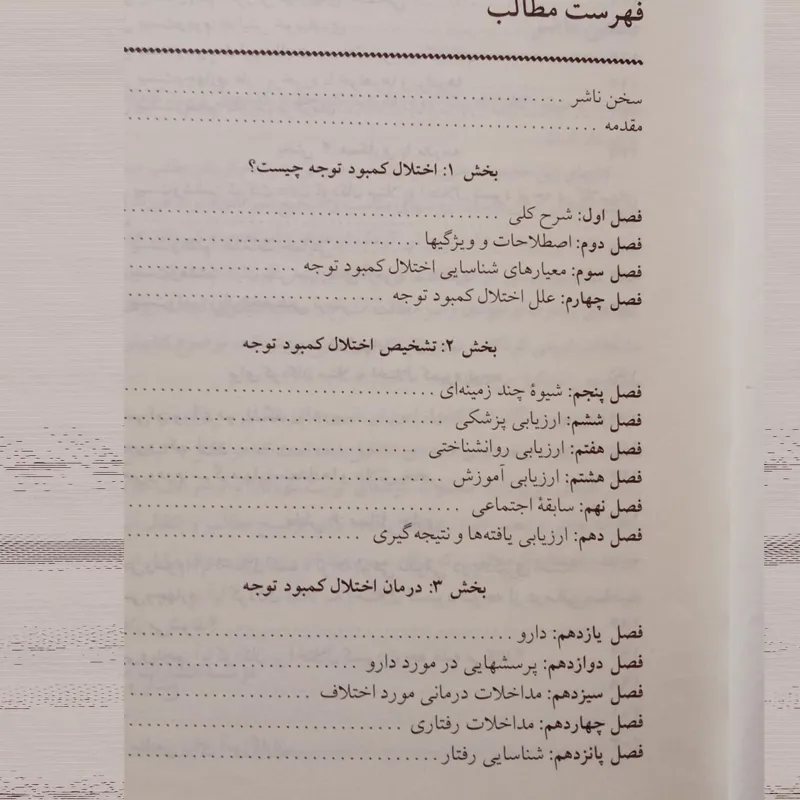 فهرست مطالب
سخن ناشر
مقدمه
بخش ۱: اختلال کمبود توجه چیست؟
فصل اول: شرح کلی
فصل دوم: اصطلاحات و ویژگیها
فصل سوم: معیارهای شناسایی اختلال کمبود توجه
فصل چهارم: علل اختلال کمبود توجه
بخش ۲: تشخیص اختلال کمبود توجه
فصل پنجم: شیوۀ چند زمینه‌ای
فصل ششم: ارزیابی پزشکی
فصل هفتم: ارزیابی روانشناختی
فصل هشتم: ارزیابی آموزش
فصل نهم: سابقۀ اجتماعی
فصل دهم: ارزیابی یافته‌ها و نتیجه‌گیری
بخش ۳: درمان اختلال کمبود توجه
فصل یازدهم: دارو
فصل دوازدهم: پرسشهایی در مورد دارو
فصل سیزدهم: مداخلات درمانی مورد اختلاف
فصل چهاردهم: مداخلات رفتاری
فصل پانزدهم: شناسایی رفتار